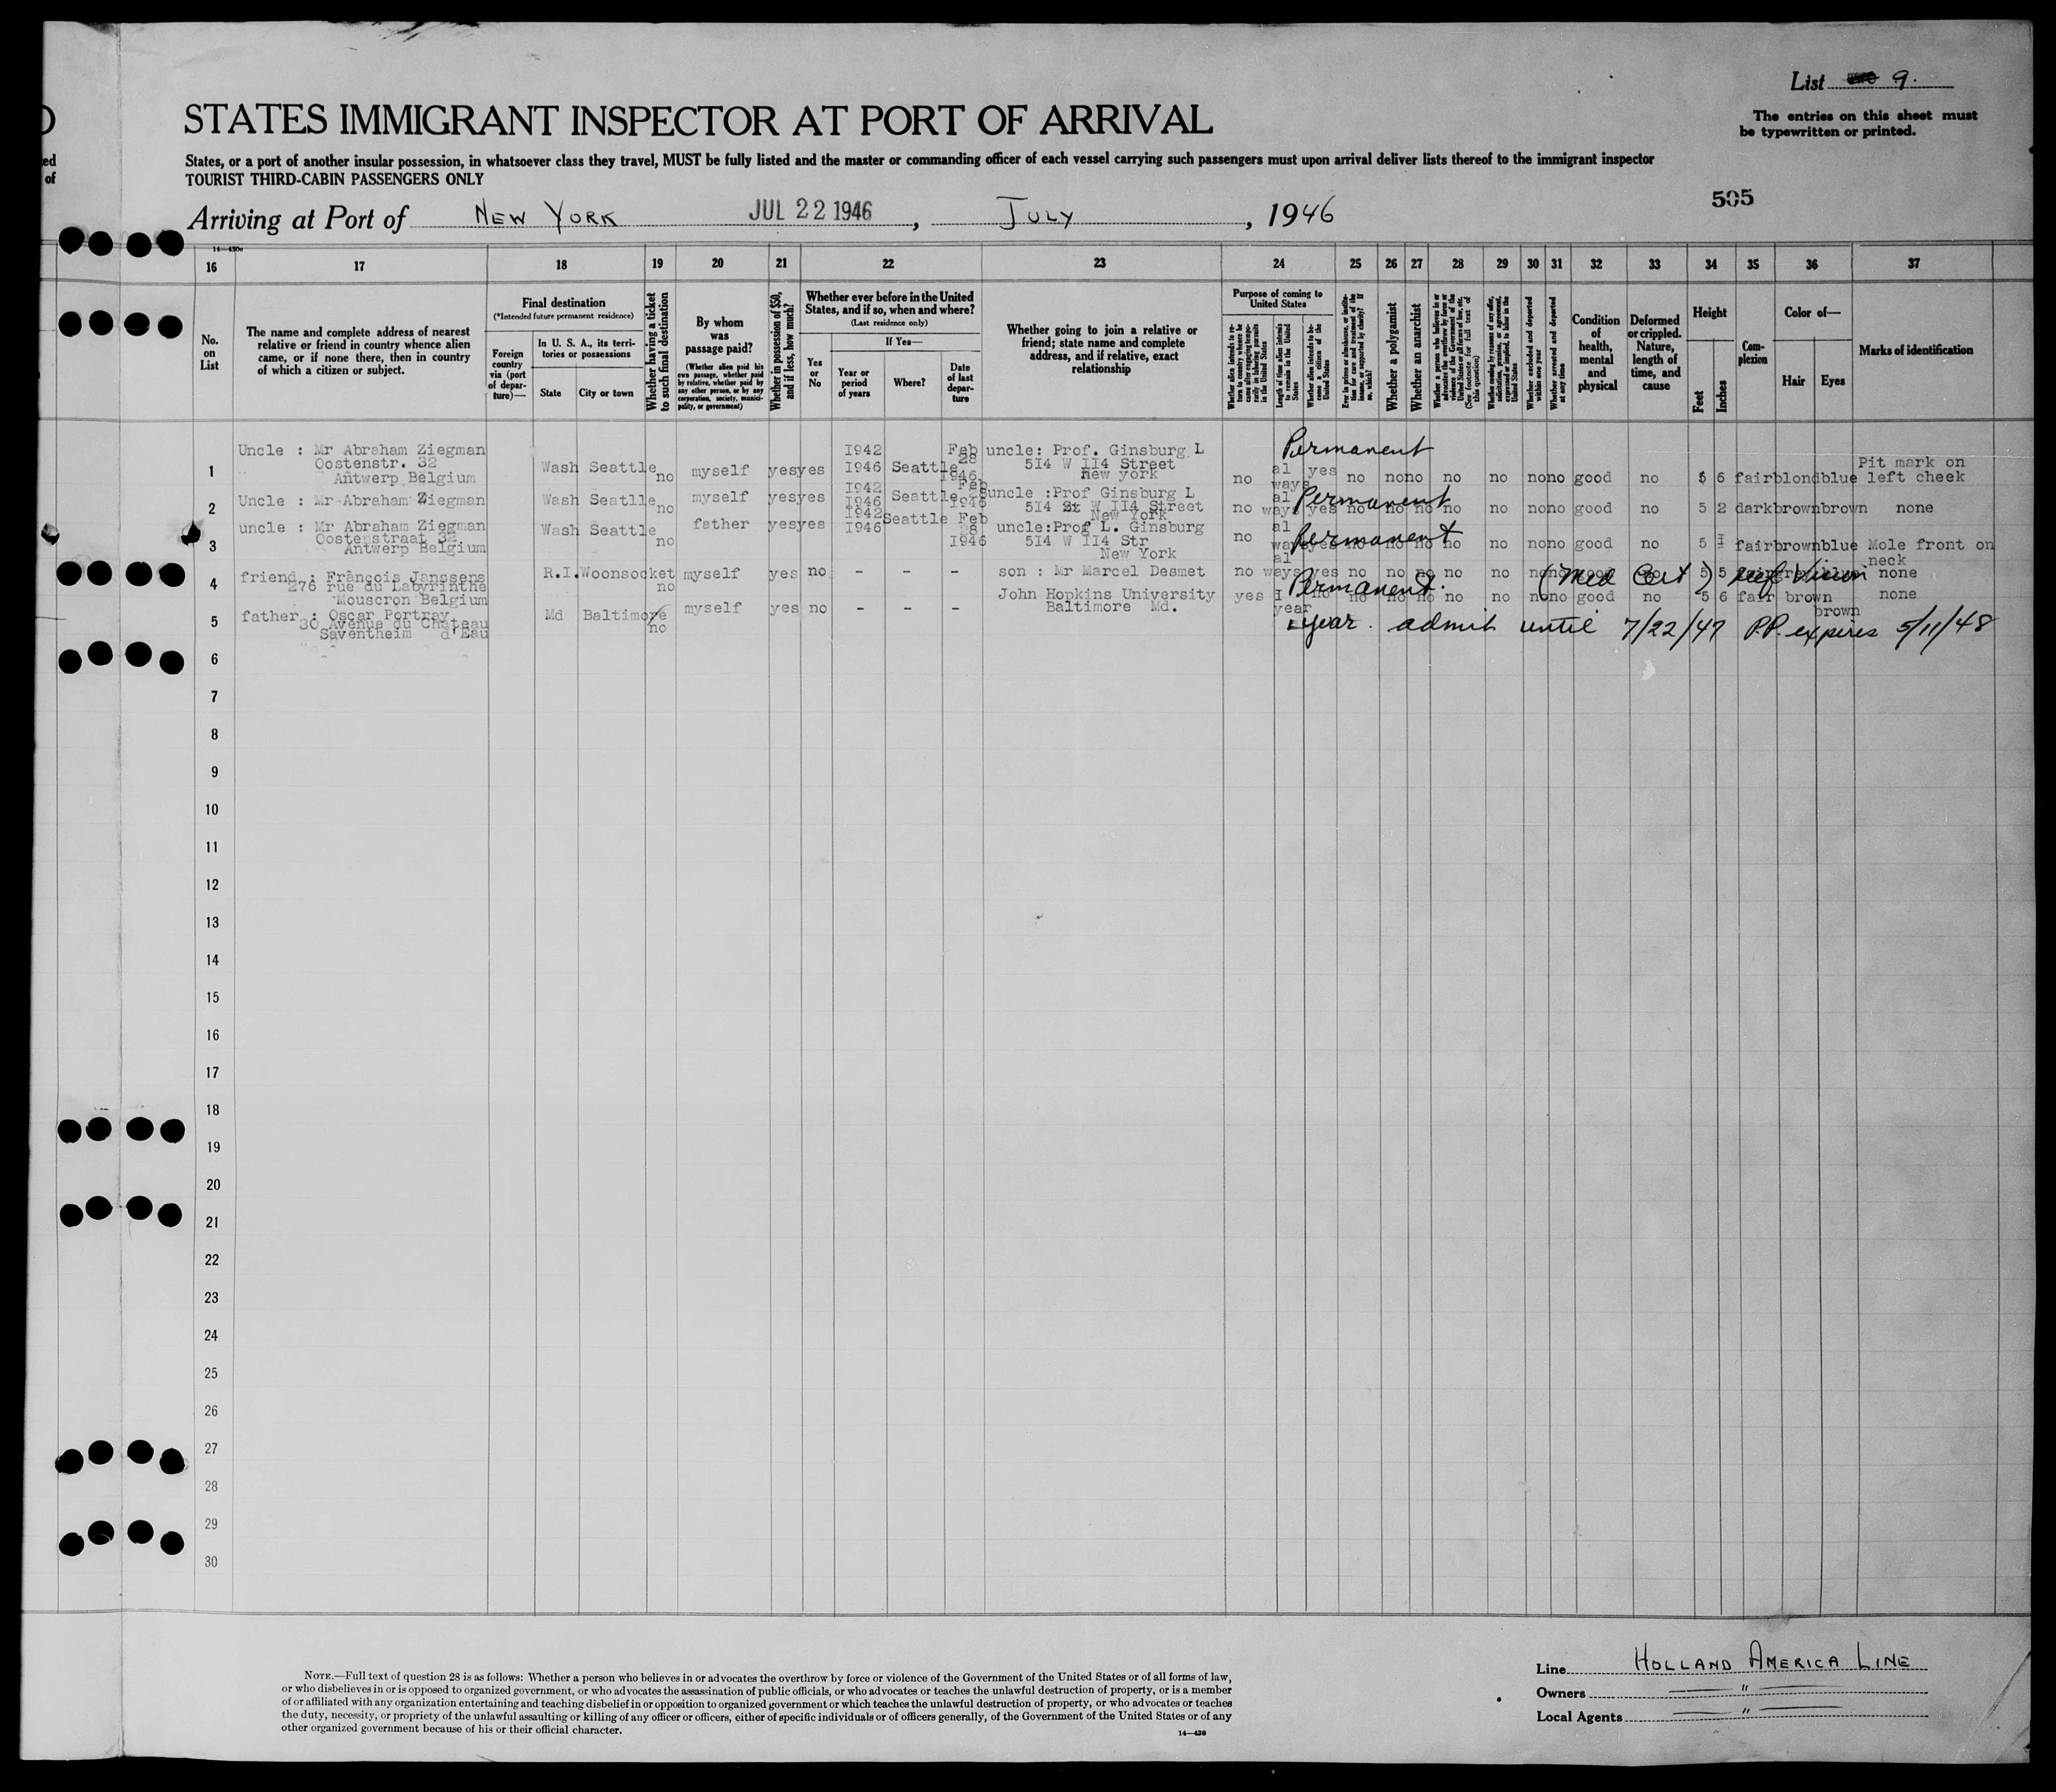 List 9.
STATES IMMIGRANT INSPECTOR AT PORT OF ARRIVAL
The entries on this sheet must
be typewritten or printed.
ed
of
States, or a port of another insular possession, in whatsoever class they travel, MUST be fully listed and the master or commanding officer of each vessel carrying such passengers must upon arrival deliver lists thereof to the immigrant inspector
TOURIST THIRD-CABIN PASSENGERS ONLY
505
Arriving at Port of NEW YORK JUL 22 1946, JULY, 1946
14—430a
16 17 18 19 20 21 22 23 24 25 26 27 28 29 30 31 32 33 34 35 36 37
No. on List
The name and complete address of nearest relative or friend in country whence alien came, or if none there, then in country of which a citizen or subject.
Final destination
(*Intended future permanent residence)
Foreign country via (port of departure)—
In U. S. A., its territories or possessions
State
City or town
Whether having a ticket to such final destination
By whom was passage paid?
(Whether alien paid his own passage, whether paid by relative, whether paid by any other person, or by any corporation, society, municipality, or government)
Whether in possession of $50, and if less, how much?
Whether ever before in the United States, and if so, when and where?
(Last residence only)
Yes or No
If Yes—
Year or period of years
Where?
Date of last departure
Whether going to join a relative or friend; state name and complete address, and if relative, exact relationship
Purpose of coming to United States
Whether alien intends to return to country whence he came after engaging temporarily in laboring pursuits in the United States
Length of time alien intends to remain in the United States
Whether alien intends to become a citizen of the United States
Whether a polygamist
Whether an anarchist
Whether excluded and deported within one year
Whether arrested and deported at any time
Condition of health, mental and physical
Deformed or crippled. Nature, length of time, and cause
Height
Feet
Inches
Complexion
Color of—
Hair
Eyes
Marks of identification
Permanent
1 Uncle : Mr Abraham Ziegman Oostenstr. 32 Antwerp Belgium Wash Seattle no myself yes yes I942 I946 Seattle Feb 28 I946 uncle: Prof. Ginsburg L 5I4 W II4 Street new york no al ways yes no no no no no no no good no 5 6 fair blond blue Pit mark on left cheek
Permanent
2 Uncle : Mr Abraham Ziegman Wash Seatlle no myself yes yes I942 I946 Seattle Feb 28 I946 uncle :Prof Ginsburg L 5I4 W II4 Street New York no al ways yes no no no no no no no good no 5 2 dark brown brown none
Permanent
3 uncle : Mr Abraham Ziegman Oostenstraat 32 Antwerp Belgium Wash Seattle no father yes yes I942 I946 Seattle Feb 28 I946 uncle:Prof L. Ginsburg 5I4 W II4 Str New York no al ways yes no no no no no no no good no 5 I fair brown blue Mole front on neck
4 friend : François Janssens 276 rue du Labyrinthe Mouscron Belgium R.I. Woonsocket no myself yes no - - - son : Mr Marcel Desmet no al ways yes no no no no no no no 5 5 none
Permanent (Med Cert) Vision
5 father : Oscar Portray 30 Avenue du Château d'Eau Saventheim Md Baltimore no myself yes no - - - John Hopkins University Baltimore Md. yes I year no no no no no no no no good no 5 6 fair brown brown none
1 year. admit until 7/22/47 P.P. expires 5/11/48
6
7
8
9
10
11
12
13
14
15
16
17
18
19
20
21
22
23
24
25
26
27
28
29
30
NOTE.—Full text of question 28 is as follows: Whether a person who believes in or advocates the overthrow by force or violence of the Government of the United States or of all forms of law,
or who disbelieves in or is opposed to organized government, or who advocates the assassination of public officials, or who advocates or teaches the unlawful destruction of property, or is a member
of or affiliated with any organization entertaining and teaching disbelief in or opposition to organized government or which teaches the unlawful destruction of property, or who advocates or teaches
the duty, necessity, or propriety of the unlawful assaulting or killing of any officer or officers, either of specific individuals or of officers generally, of the Government of the United States or of any
other organized government because of his or their official character.
14—430
Line HOLLAND AMERICA LINE
Owners "
Local Agents "